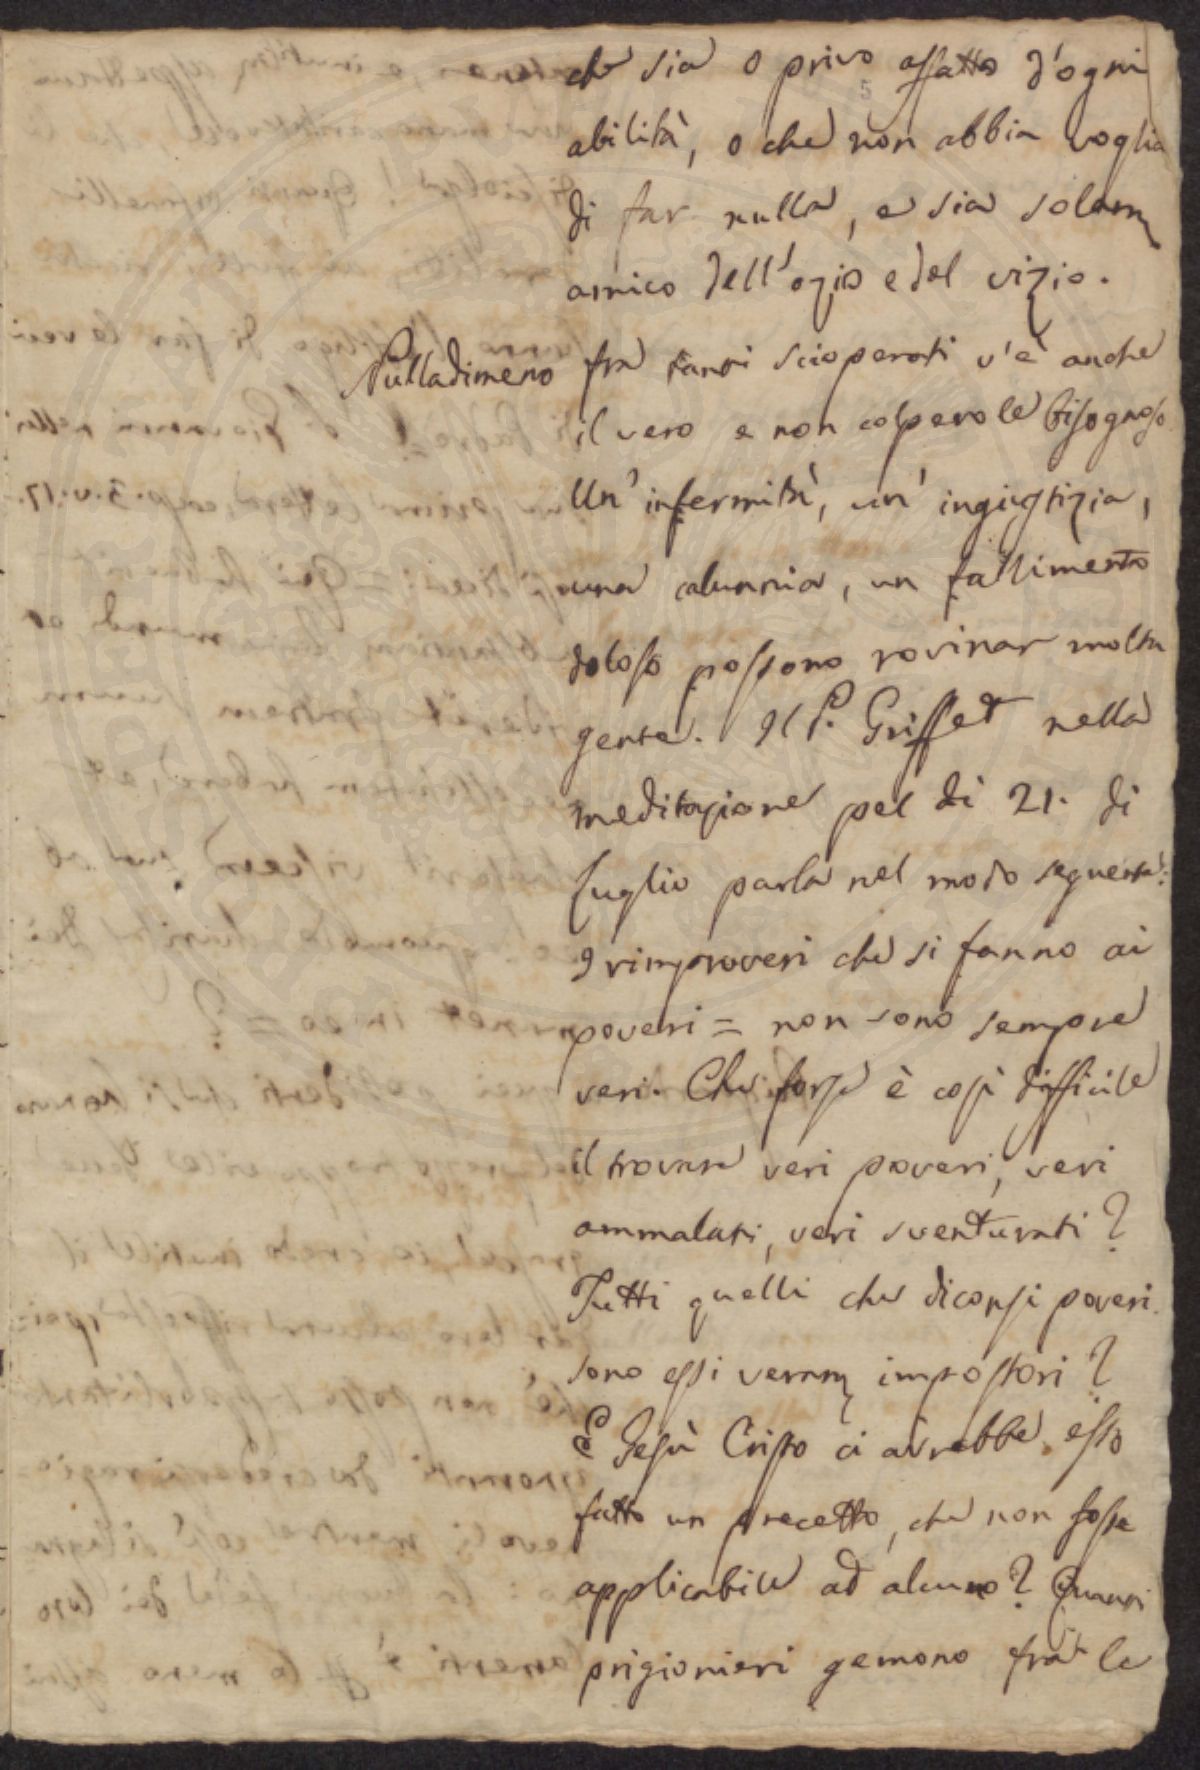 che sia o privo affatto d'ogni
5
abilità, o che non abbia voglia
di far nulla, e sia solam
amico dell'ozio e del vizio.
Nulladimeno fra tanti scioperati v'è anche
il vero e non colpevole bisognoso
Un' infermità, un' ingiustizia,
una calunnia, un fallimento
doloso possono rovinar molta
gente. Il P. Griffet nella
meditazione pel dì 21. di
Luglio parla nel modo seguente:
I rimproveri che si fanno ai
poveri = non sono sempre
veri. Che forse è così difficile
il trovare veri poveri, veri
ammalati, veri sventurati?
Tutti quelli che diconsi poveri
sono essi veram impostori?
E Gesù Cristo ci avrebbe esso
fatto un precetto, che non fosse
applicabile ad alcuno? Quanti
prigionieri gemono fra le